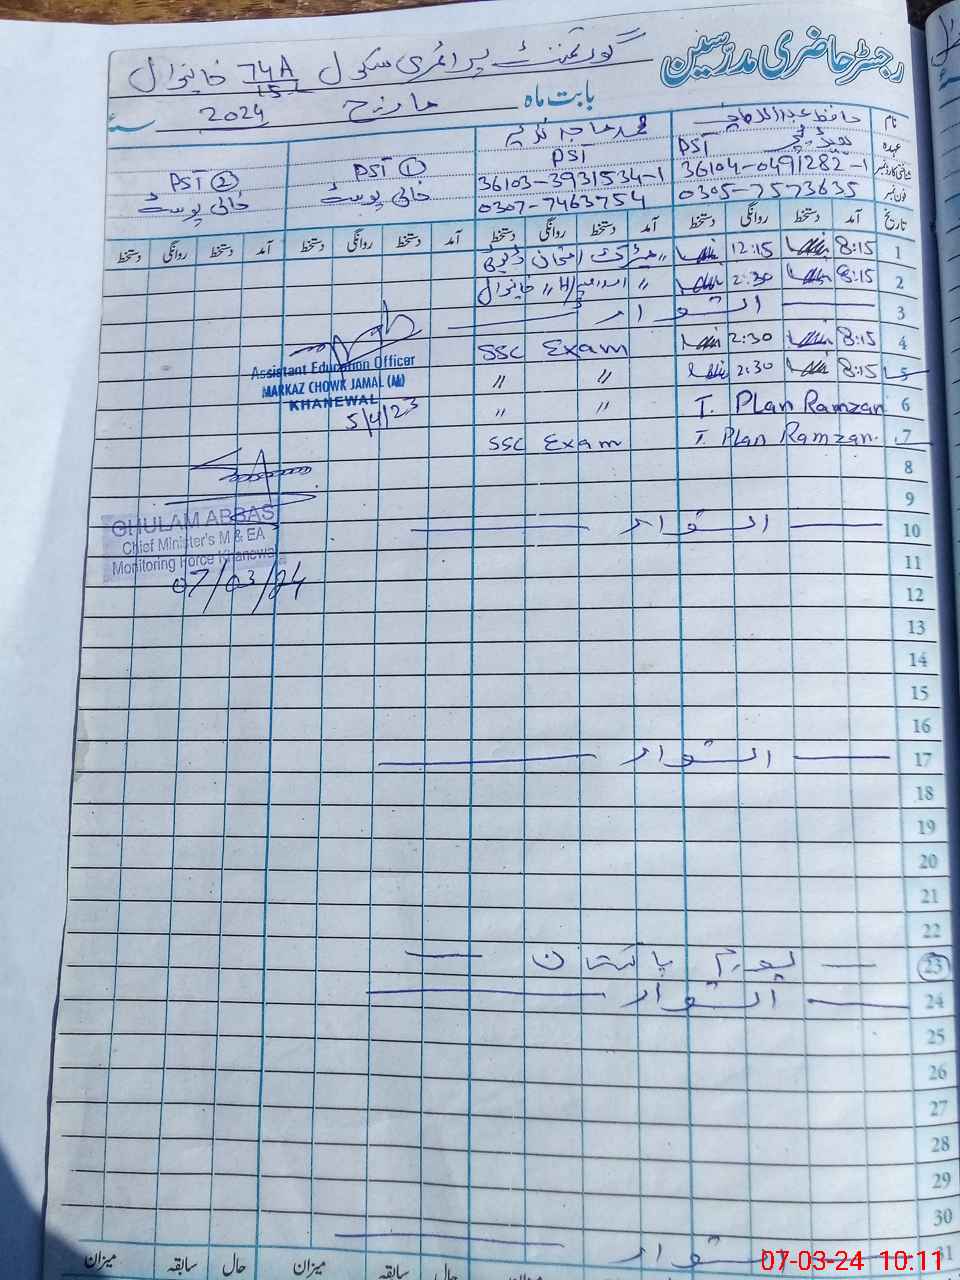 رجسٹر حاضری مدرسین
گورنمنٹ پرائمری سکول 74A/15L خانیوال
بابت ماہ مارچ 2024 سنہ
نام حافظ عبدالله محمد ماجد ندیم
عہدہ ہیڈ ٹیچر PST PST PST ① PST ②
شناختی کارڈ نمبر 36104-0491282-1 36103-3931534-1 خالی پوسٹ خالی پوسٹ
فون نمبر 0305-7573635 0307-7463754
تاریخ آمد دستخط روانگی دستخط آمد دستخط روانگی دستخط آمد دستخط روانگی دستخط آمد دستخط روانگی دستخط
1 8:15 12:15 〃 میٹرک امتحان ڈیوٹی
2 8:15 2:30 〃 〃 خانیوال
3 اتوار
4 8:15 2:30 SSC Exam
5 8:15 2:30 〃 〃
6 T. Plan Ramzan 〃 〃
7 T. Plan Ramzan. SSC Exam
Assistant Education Officer
MARKAZ CHOWK JAMAL (M)
KHANEWAL
5/4/23
GHULAM ABBAS
Chief Minister's M & EA
Monitoring Force Khanewal
07/03/24
8
9
10 اتوار
11
12
13
14
15
16
17 اتوار
18
19
20
21
22
23 یوم پاکستان
24 اتوار
25
26
27
28
29
30
31 اتوار
میزان سابقہ حال میزان سابقہ حال میزان
07-03-24 10:11